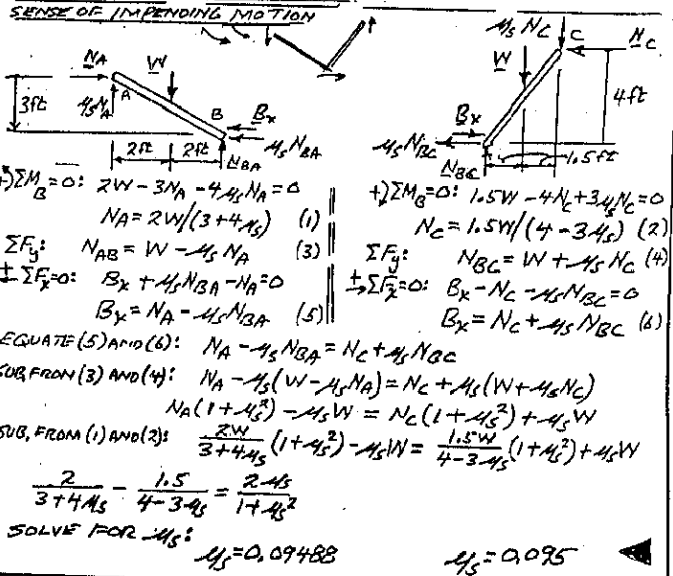 SENSE OF IMPENDING MOTION
NA
W
3ft
μsNA
A
B
Bx
μsNBA
2ft
2ft
NBA
+) ΣMB=0: 2W - 3NA - 4μsNA = 0
NA = 2W/(3+4μs) (1)
ΣFy: NAB = W - μsNA (3)
+ ΣFx=0: Bx + μsNBA - NA = 0
Bx = NA - μsNBA (5)
μsNC
C
NC
W
4ft
Bx
μsNBC
NBC
1.5ft
+) ΣMB=0: 1.5W - 4NC + 3μsNC = 0
NC = 1.5W/(4 - 3μs) (2)
ΣFy: NBC = W + μsNC (4)
+ ΣFx=0: Bx - NC - μsNBC = 0
Bx = NC + μsNBC (6)
EQUATE (5) AND (6): NA - μsNBA = NC + μsNBC
SUB, FROM (3) AND (4): NA - μs(W - μsNA) = NC + μs(W + μsNC)
NA(1+μs²) - μsW = NC(1+μs²) + μsW
SUB, FROM (1) AND (2): 2W/(3+4μs) (1+μs²) - μsW = 1.5W/(4-3μs) (1+μs²) + μsW
2/(3+4μs) - 1.5/(4-3μs) = 2μs/(1+μs²)
SOLVE FOR μs:
μs = 0.09488 μs = 0.095